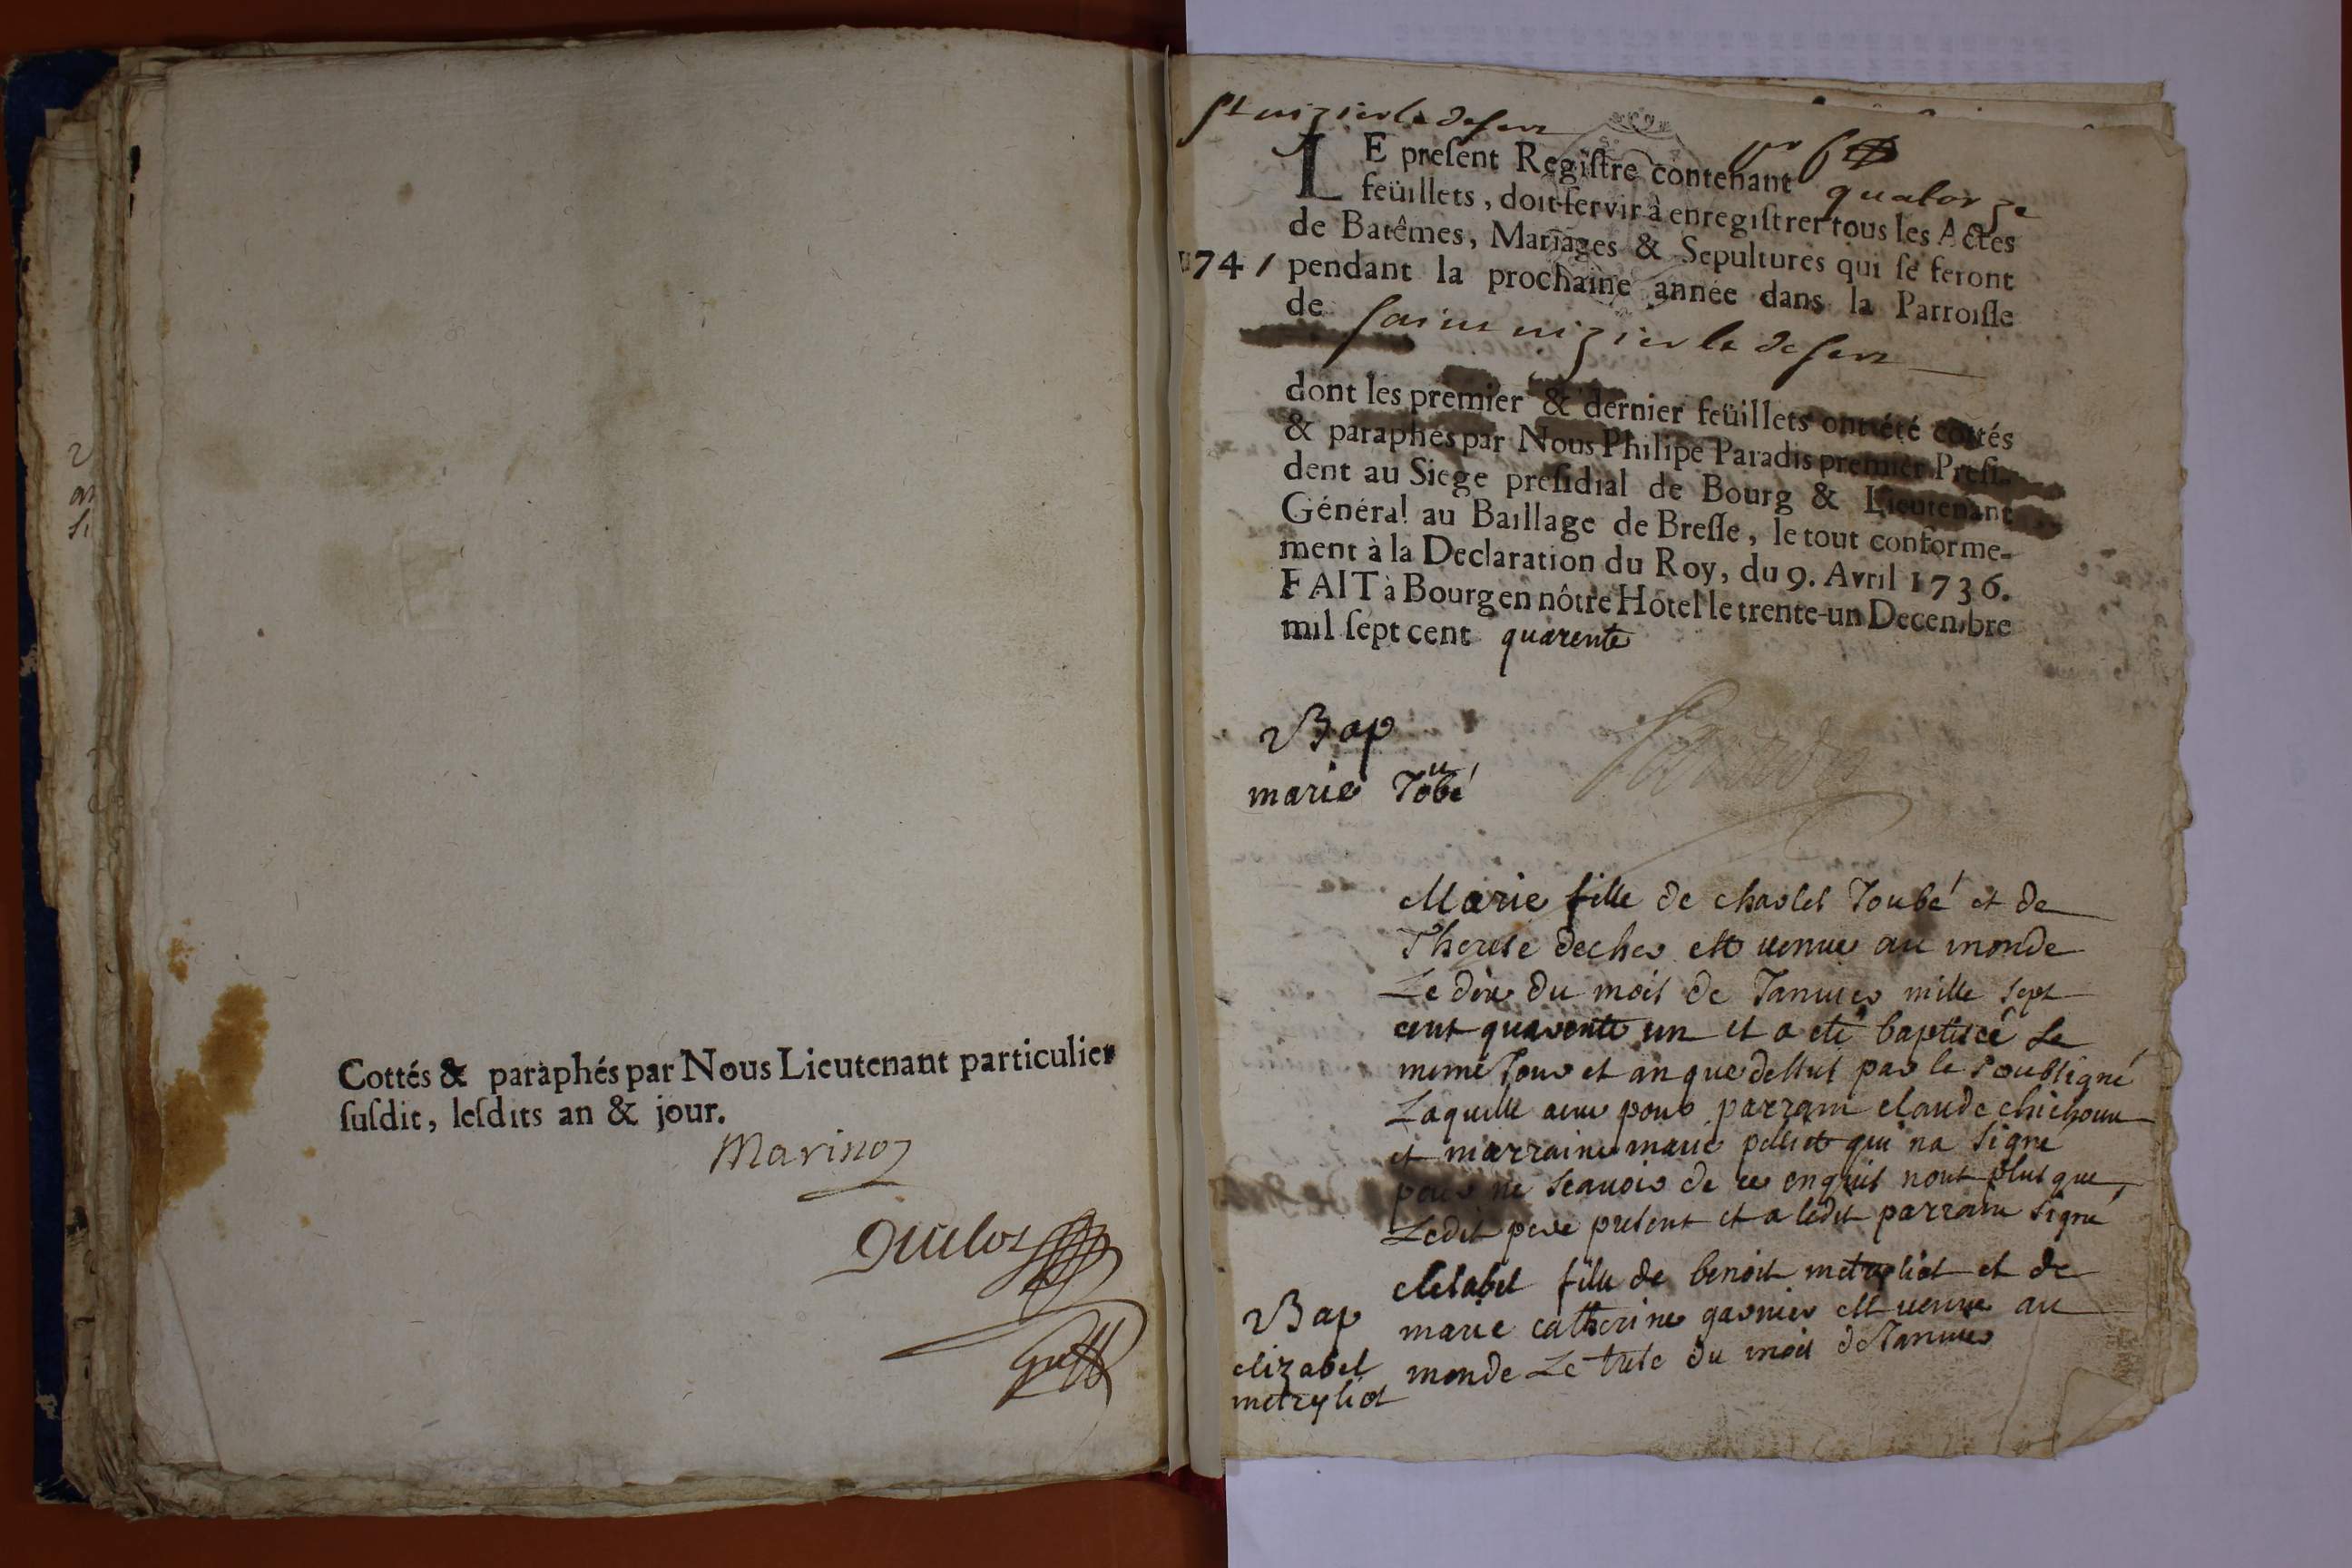 Cottés & paraphés par Nous Lieutenant particulier
ſuſdit, leſdits an & jour.
st nizier le desert
LE preſent Regiſtre contenant quatorze
feüillets, doit ſervir à enregiſtrer tous les Actes
de Batêmes, Mariages & Sepultures qui ſe feront
1741 pendant la prochaine année dans la Parroiſſe
de saint nizier le desert
dont les premier & dernier feüillets ont été cottés
& paraphés par Nous Philipe Paradis premier Preſi-
dent au Siege preſidial de Bourg & Lieutenant
Général au Baillage de Breſſe, le tout conforme-
ment à la Declaration du Roy, du 9. Avril 1736.
FAIT à Bourg en nôtre Hôtel le trente-un Decembre
mil ſept cent quarente
Bap
marie Joubé
Marie fille de charles Joubé et de
Therese est venue au monde
Le dix du mois de Janvier mille sept
cent quarente un et a eté baptiseé Le
meme Jour et an que dessus par le soubsigné
Laquelle a eue pour parrain claude
et marraine marie qui na signé
pour ne scauoir de ce enquis nont plus que
Ledit pere present et a ledit parrain signé
elisabet fille de benoit metrejliat et de
marie catherine garnier est venue au
monde Le trese du mois de Janvier
Bap
elizabet
metrejliat